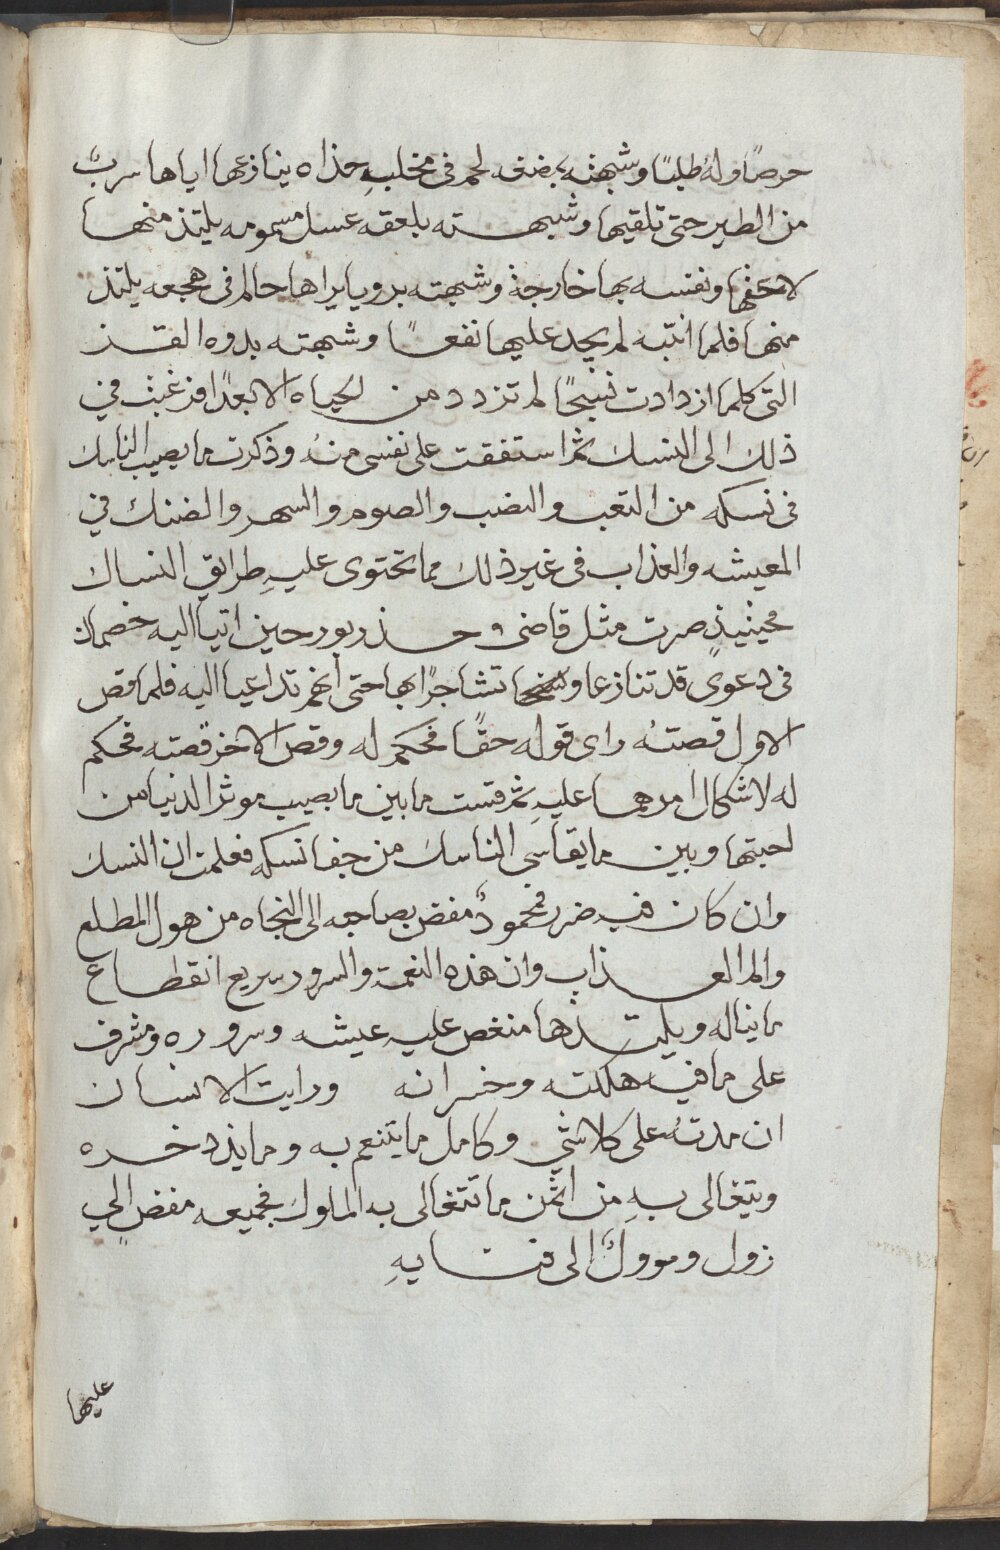 حرصًا وله طلبًا وشبهته ببضعه لحم في مخلب حذاه ينازعها اياها سربٌ
من الطير حتى تلقيها وشبهته بلعقه عسل مسمومه يلتذ منها
لاعقها ونفسه بها خارجة وشبهته برويا يراها حالم في هجعه يلتذ
منها فلما انتبه لم يجد عليها نفعًا وشبهته بدوه القز
التي كلما ازدادت نسيجًا لم تزدد من الحياه الا بعدًا فرغبت في
ذلك الى النسك ثم استفقت على نفسي منه وذكرت ما يصيب الناسك
في نسكه من التعب والنصب والصوم والسهر والضنك في
المعيشه والعذاب في غير ذلك مما تحتوى عليهِ طرايق النساك
فحينيذٍ صرت مثل قاضي وحذريور حين اتيا اليه خصمان
في دعوى قد تنازعا تشاجرًا بها حتى انهم تداعيا اليه فلما قص
الاول قصتهُ راى قوله حقًا فحكم له وقص الاخر قصته فحكم
له لاشكال امرهما عليهِ ثم قست ما بين ما يصيب موثر الدنيا من
لحبتها وبين ما يقاسي الناسك من جفا نسكه فعلمت ان النسك
وان كان فيه ضرر فمحمودٌ مفض بصاحبه الى النجاه من هول المطلع
والم العذاب وان هذه النعمة والسرور سريع انقطاع
ما يناله ويلتذها منغص عليه عيشه وسروره ومشرف
على ما فيه هلكته وخسرانه ورايت الانسان
ان مدتهُ على كلاشي وكامل ما يتنعم به وما يذدخره
ويتغالى بهِ من اثمن ما تتغالى به الملوك فجميعه مفضٍ الي
زول وموولٌ الى فنايهِ
عليها